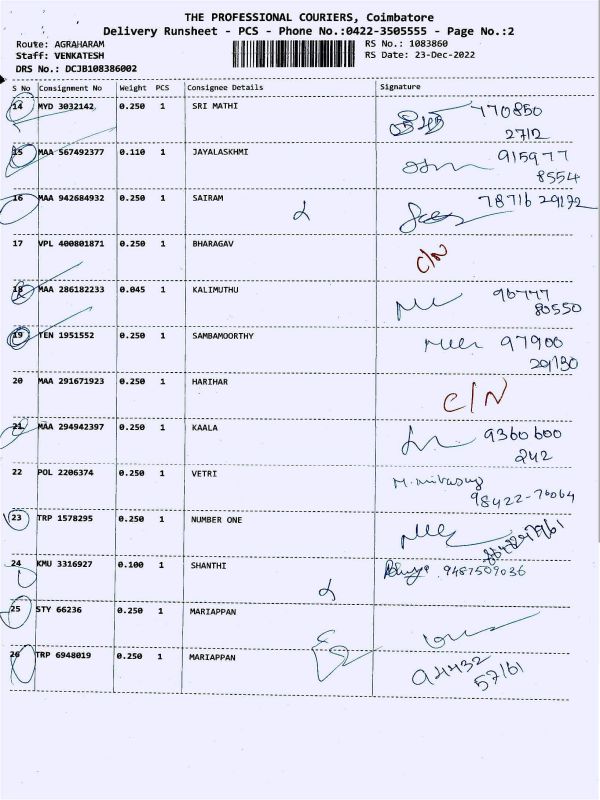 THE PROFESSIONAL COURIERS, Coimbatore
Delivery Runsheet - PCS - Phone No.:0422-3505555 - Page No.:2
Route: AGRAHARAM
RS No.: 1083860
Staff: VENKATESH
RS Date: 23-Dec-2022
DRS No.: DCJB108386002
S No Consignment No Weight PCS Consignee Details Signature
14 MYD 3032142 0.250 1 SRI MATHI 770850
2712
15 MAA 567492377 0.110 1 JAYALASKHMI 915977
8554
16 MAA 942684932 0.250 1 SAIRAM 78716 29172
17 VPL 400801871 0.250 1 BHARAGAV C/N
18 MAA 286182233 0.045 1 KALIMUTHU 96777
80550
19 TEN 1951552 0.250 1 SAMBAMOORTHY 97900
29130
20 MAA 291671923 0.250 1 HARIHAR C/N
21 MAA 294942397 0.250 1 KAALA 9360600
242
22 POL 2206374 0.250 1 VETRI
98422-76064
23 TRP 1578295 0.250 1 NUMBER ONE
24 KMU 3316927 0.100 1 SHANTHI 9487509036
25 STY 66236 0.250 1 MARIAPPAN
26 TRP 6948019 0.250 1 MARIAPPAN 94432
57161